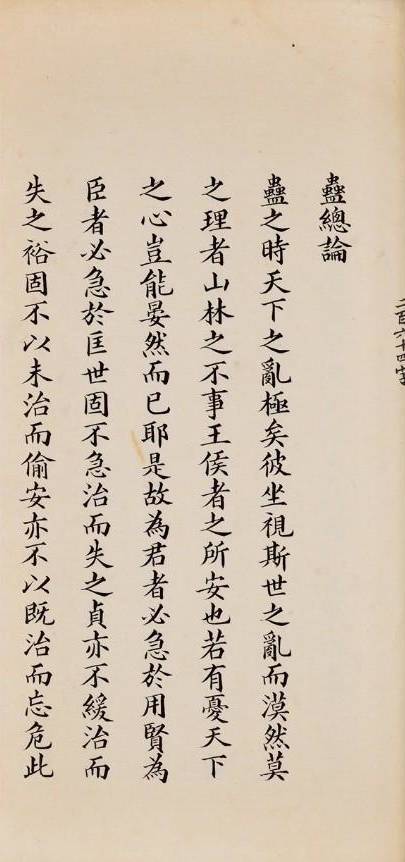 二百六十四字
蠱總論
蠱之時天下之亂極矣彼坐視斯世之亂而漠然莫
之理者山林之不事王侯者之所安也若有憂天下
之心豈能晏然而已耶是故為君者必急於用賢為
臣者必急於匡世固不急治而失之貞亦不緩治而
失之裕固不以未治而偷安亦不以既治而忘危此